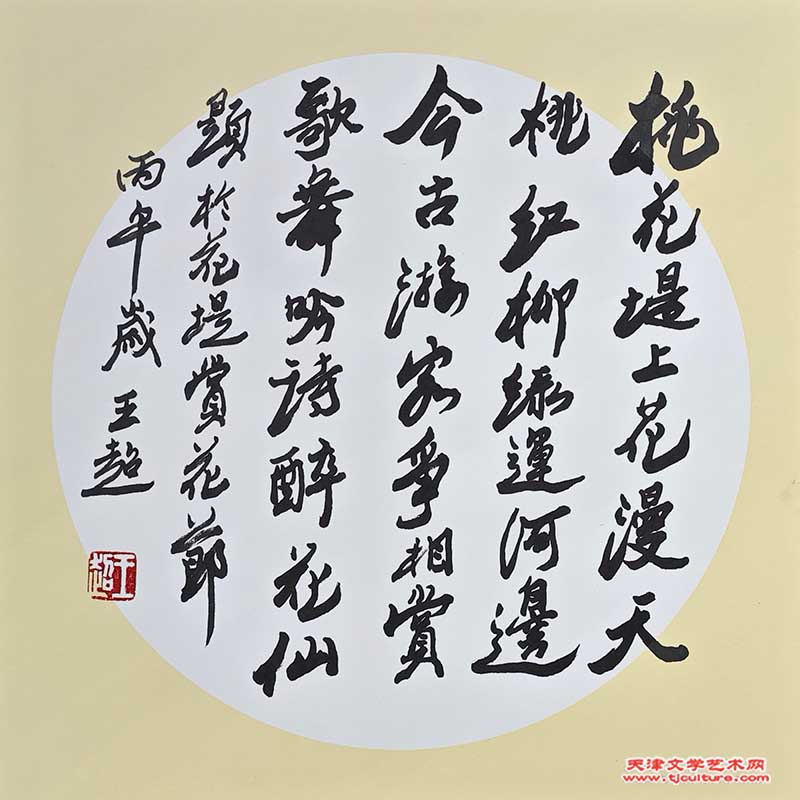 桃花堤上花漫天
桃红柳绿運河邊
今古游客爭相賞
歌舞吟詩醉花仙
題於花堤賞花節
丙午歲王超
王超
天津文学艺术网
www.tjculture.com